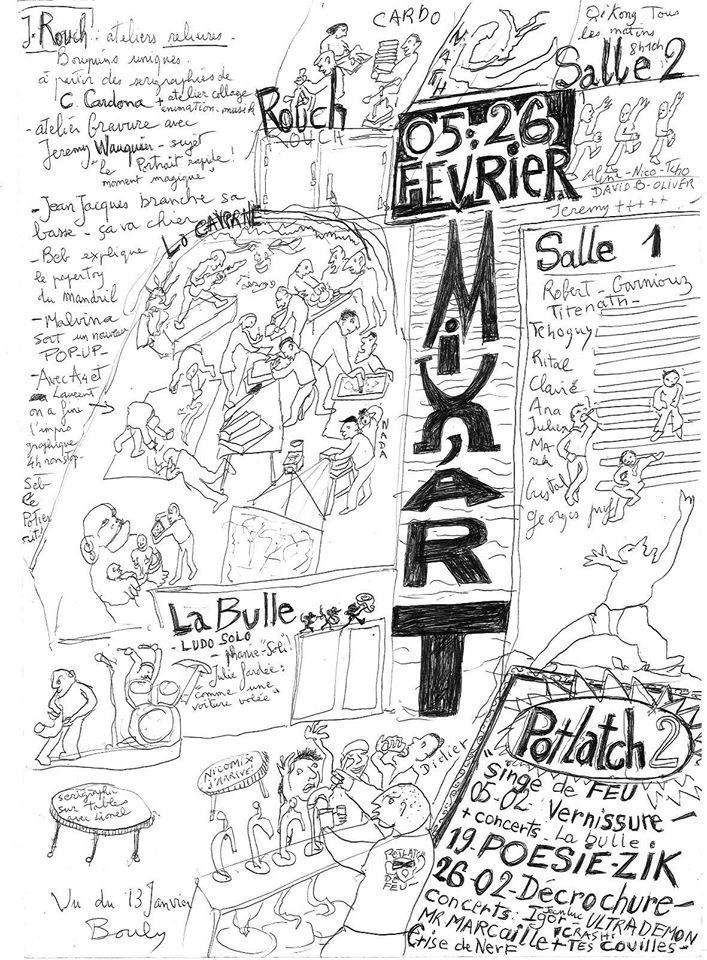 J. Rouch: ateliers reliures -
Bouquins uniques
à partir des serigraphies de
C. Cardona + atelier collage
animation. musik
- atelier Gravure avec
Jeremy Wauquier - sujet
"le Portrait rapide!
moment magique"
- Jean Jacques branche sa
basse - ça va chier
- Beb explique
le papertoy
du Mandril
- Malvina
sort un nouveau
POP-UP -
- Avec A4 et
Laurent
on a fini
l'impro
graphique
4h nonstop.
Seb
Le
Potier
rit!
CARDO
MATH
Rouch
ROUCH
QiKong Tous
les matins
8h10h
Salle 2
05:26
FEVRIER
Aline - Nico - Tcho
DAVID B - OLIVER
Jeremy +++++
LO CAVERNE
NADA
MIX'ART
Salle 1
Robert - Garniouz
Titenath -
Tchoguy
Rital
Clairé
Ana
Julien
MA
rek
Cristal
georges
La Bulle
- LUDO SOLO
- phanie "Soli"
Julie fardée:
"comme une
voiture volée"
serigraphie
sur Tables
avec Lionel
NICOMIX
J'ARRIVE
Didier
POTLATCH
DE
FEU
Vu du 13 Janvier
Bouly
Potlatch 2
Singe de FEU
05-02 Vernissure -
+ concerts - La bulle
19. POESIE-ZIK
26-02 - Décrochure -
concerts. Igor ULTRADEMON
MR MARCaille + TES COUILLES -
CRASH!
Crise de Nerf